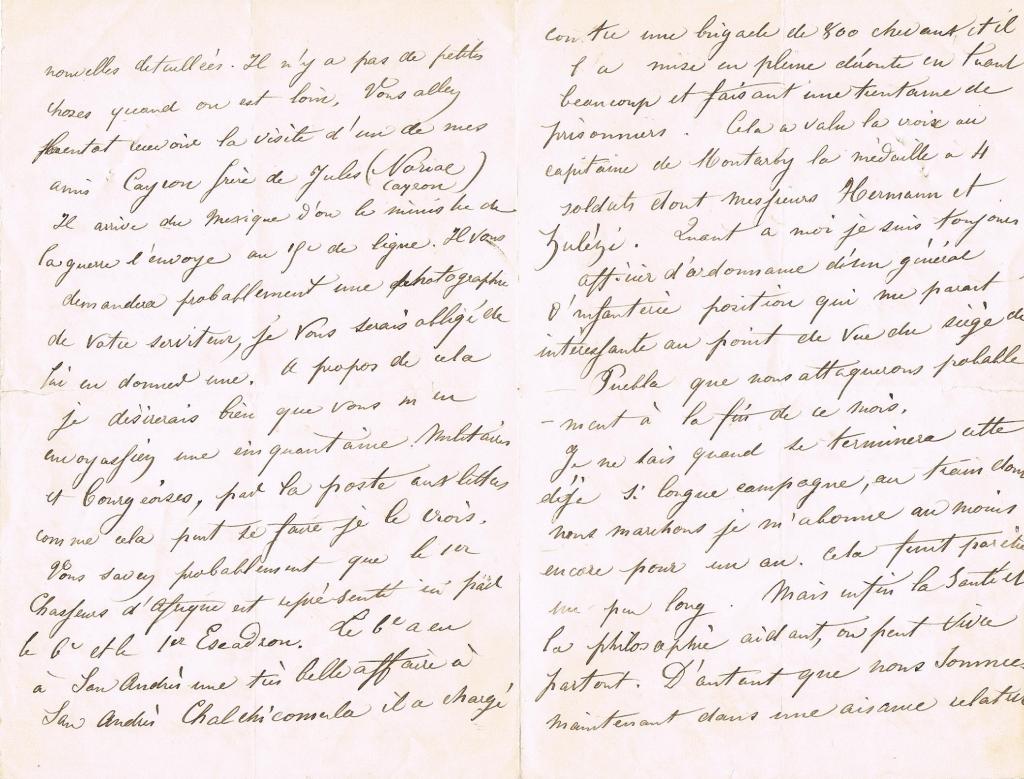 nouvelles detaillées. Il n'y a pas de petites
choses quand on est loin. Vous allez
bientot recevoir la visite d'un de mes
amis Cayron frère de Jules (Noriac
Cayron)
Il arrive du Mexique d'où le ministre de
la guerre l'envoye au 15e de ligne. Il vous
demandera probablement une photographie
de votre serviteur, je vous serais obligé de
lui en donner une. A propos de cela
je désirerais bien que vous m'en
envoyassiez une cinquantaine. Militaires
et bourgeoises, par la poste aux lettres
comme cela peut se faire je le crois.
Vous savez probablement que le 1er
Chasseurs d'Afrique est représenté ici par
le 6e et le 1er Escadron. Le 6e a eu
à San Andrès une très belle affaire à
San Andrès Chalchicomula il a chargé
contre une brigade de 800 chevaux et il
l'a mise en pleine déroute en tuant
beaucoup et faisant une trentaine de
prisonniers. Cela a valu la croix au
capitaine de Montarby la médaille a 4
soldats dont messieurs Hermann et
Quant a moi je suis toujours
officier d'ordonnance d'un général
d'infanterie position qui me parait
intéressante au point de vue du siège de
Puebla que nous attaquerons probable
-ment à la fin de ce mois.
Je ne sais quand se terminera cette
déjà si longue campagne, au train dont
nous marchons je m'abonne au moins
encore pour un an. Cela finit par être
un peu long. Mais enfin la Santé et
la philosophie aidant, on peut vivre
partout. D'autant que nous sommes
maintenant dans une aisance relative